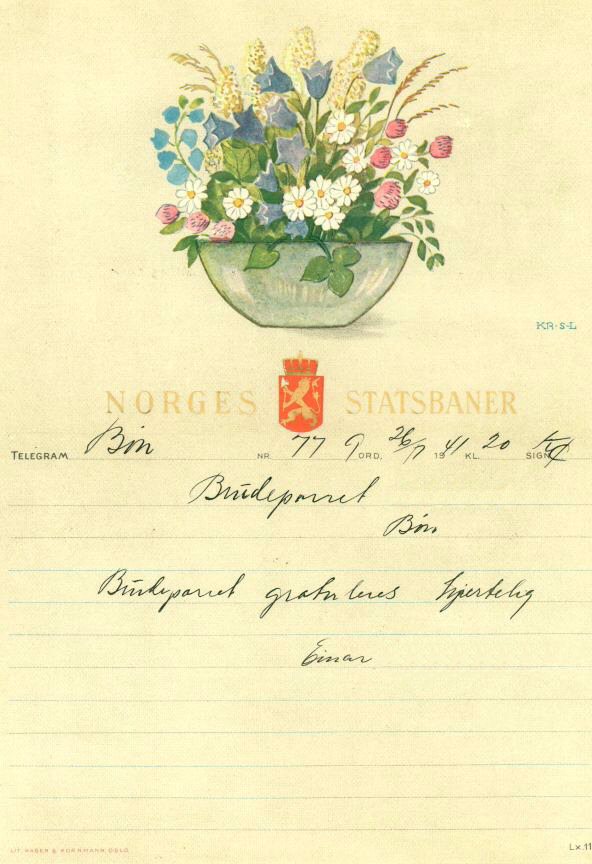 KR·S-L
NORGES STATSBANER
TELEGRAM Bön NR. 77 9 ORD, 26/7 1941 KL. 20 SIGN.
Brudeparret
Bön
Brudeparret gratuleres hjertelig
Einar
LIT. KABER & KORNMANN, OSLO.
Lx.11